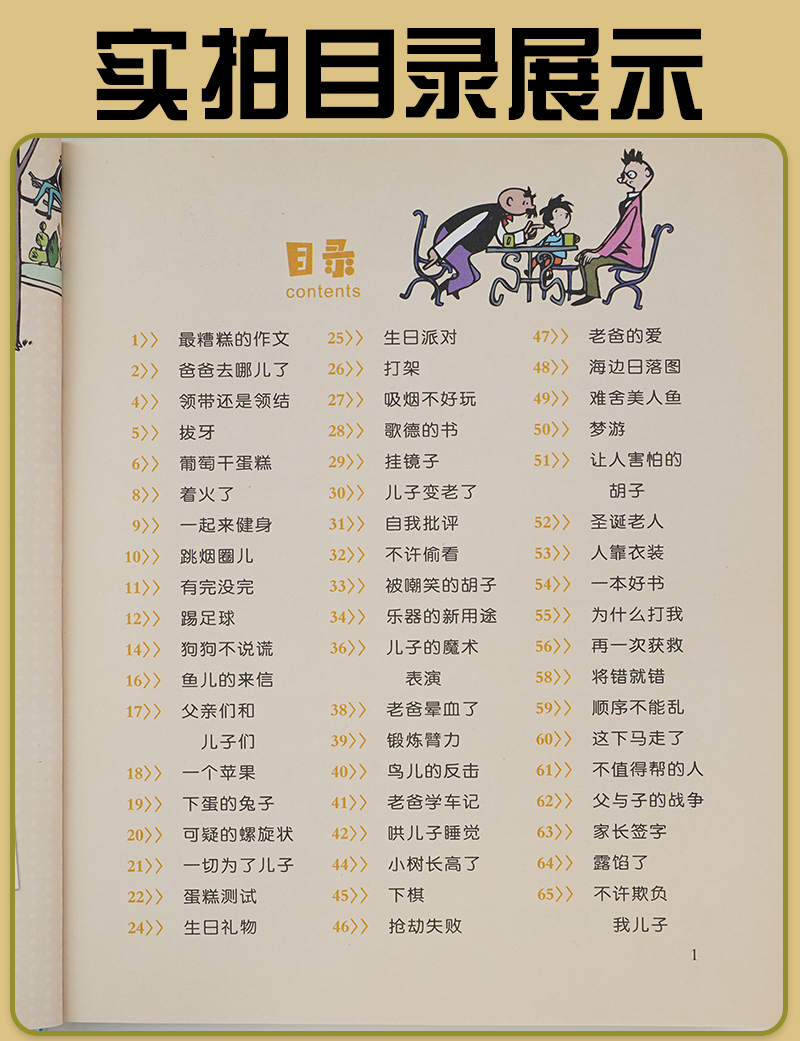 实拍目录展示
目录
contents
1>> 最糟糕的作文
2>> 爸爸去哪儿了
4>> 领带还是领结
5>> 拔牙
6>> 葡萄干蛋糕
8>> 着火了
9>> 一起来健身
10>> 跳烟圈儿
11>> 有完没完
12>> 踢足球
14>> 狗狗不说谎
16>> 鱼儿的来信
17>> 父亲们和
儿子们
18>> 一个苹果
19>> 下蛋的兔子
20>> 可疑的螺旋状
21>> 一切为了儿子
22>> 蛋糕测试
24>> 生日礼物
25>> 生日派对
26>> 打架
27>> 吸烟不好玩
28>> 歌德的书
29>> 挂镜子
30>> 儿子变老了
31>> 自我批评
32>> 不许偷看
33>> 被嘲笑的胡子
34>> 乐器的新用途
36>> 儿子的魔术
表演
38>> 老爸晕血了
39>> 锻炼臂力
40>> 鸟儿的反击
41>> 老爸学车记
42>> 哄儿子睡觉
44>> 小树长高了
45>> 下棋
46>> 抢劫失败
47>> 老爸的爱
48>> 海边日落图
49>> 难舍美人鱼
50>> 梦游
51>> 让人害怕的
胡子
52>> 圣诞老人
53>> 人靠衣装
54>> 一本好书
55>> 为什么打我
56>> 再一次获救
58>> 将错就错
59>> 顺序不能乱
60>> 这下马走了
61>> 不值得帮的人
62>> 父与子的战争
63>> 家长签字
64>> 露馅了
65>> 不许欺负
我儿子
1